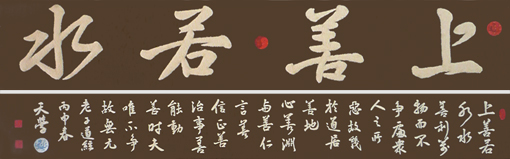 上善若水
上善若
水水
善利万
物而不
争處衆
人之所
惡故幾
於道居
善地
心善渊
与善仁
言善
信正善
治事善
能動
善时夫
唯不争
故无尤
老子道經
丙申春